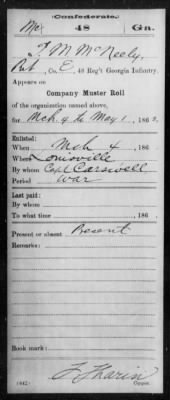 Confederate.
Mc 48 Ga.
T M McNeely,
Pvt, Co. E, 48 Reg't Georgia Infantry.
Appears on
Company Muster Roll
of the organization named above,
for Mch. 4 to May 1, 186 .
Enlisted:
When Mch 4, 186 .
Where Louisville
By whom Capt Carswell
Period War
Last paid:
By whom
To what time , 186 .
Present or absent Present
Remarks:
Book mark:
(642)
Copyist.